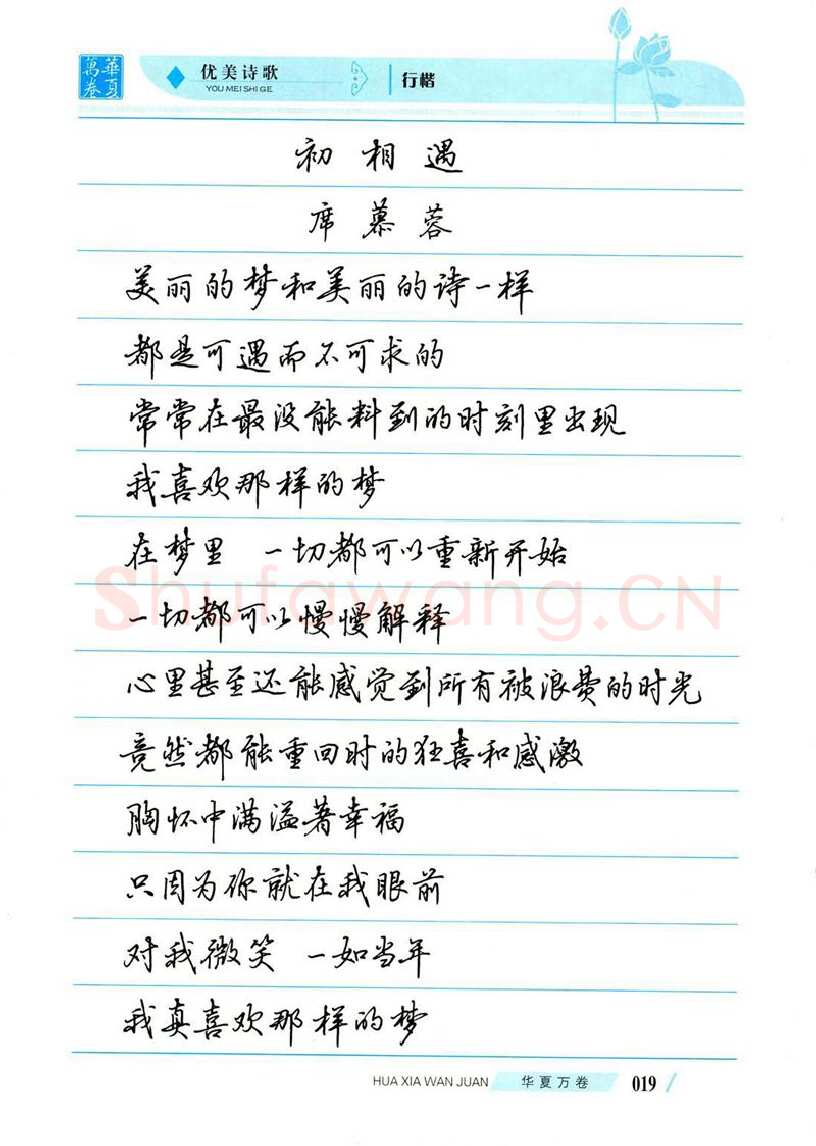 華夏萬卷
优美诗歌 行楷
YOU MEI SHI GE
初相遇
席慕蓉
美丽的梦和美丽的诗一样
都是可遇而不可求的
常常在最没能料到的时刻里出现
我喜欢那样的梦
在梦里 一切都可以重新开始
一切都可以慢慢解释
心里甚至还能感觉到所有被浪费的时光
竟然都能重回时的狂喜和感激
胸怀中满溢著幸福
只因为你就在我眼前
对我微笑 一如当年
我真喜欢那样的梦
Shufawang.CN
HUA XIA WAN JUAN 华夏万卷 019